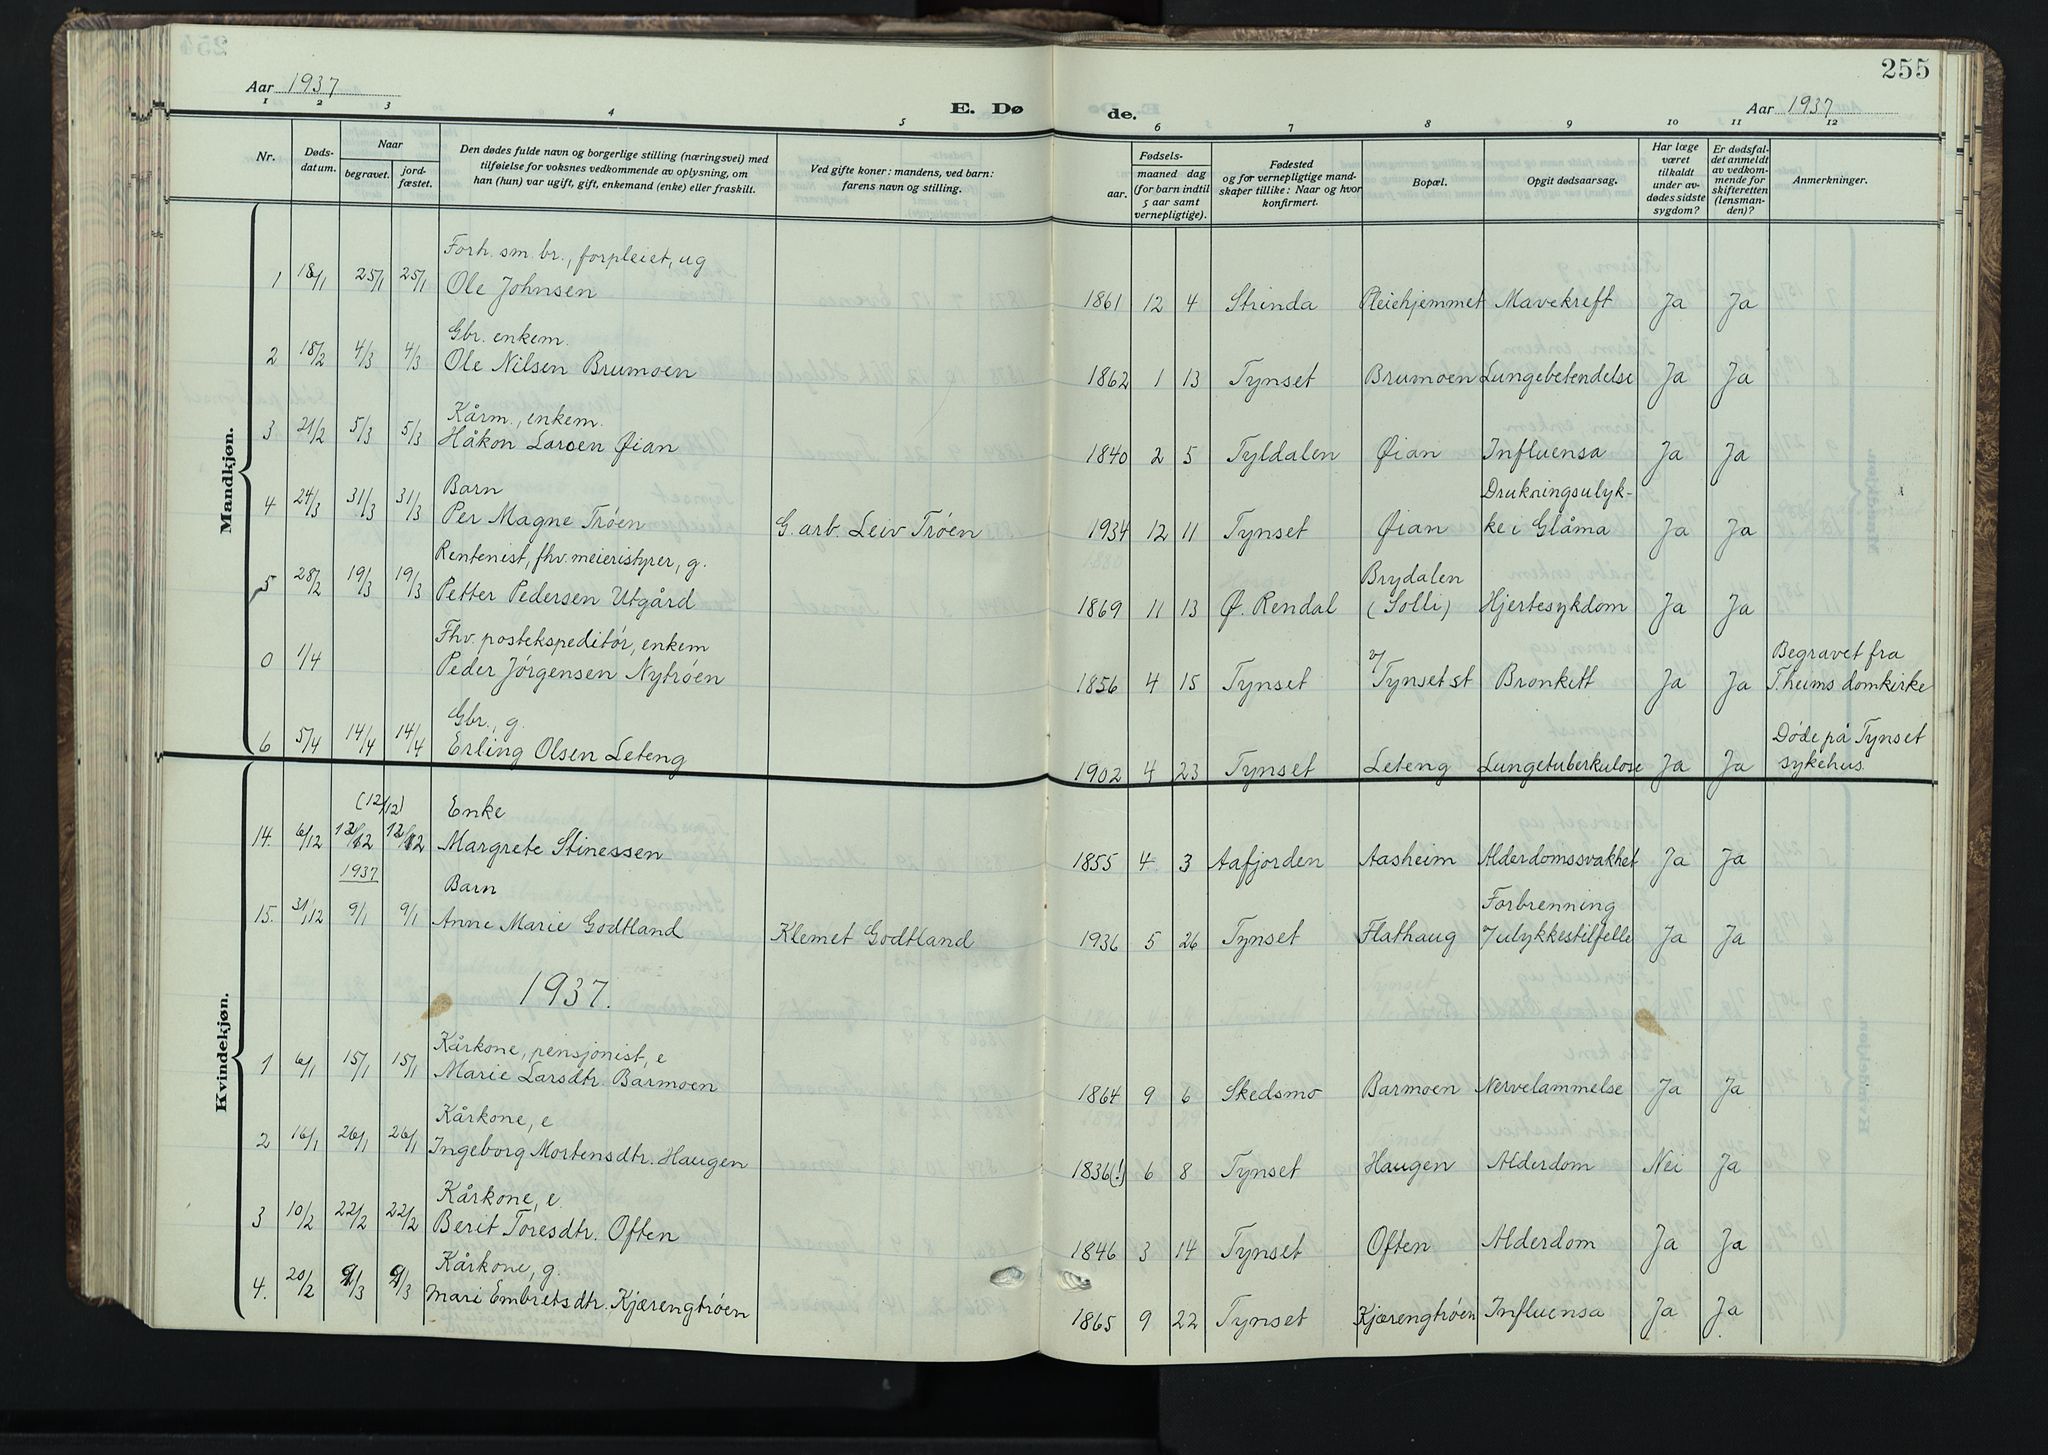 255
Aar 1937
E. Dø
de.
Aar 1937
1 2 3 4 5 6 7 8 9 10 11 12
Nr.
Døds-
datum.
Naar
begravet.
jord-
fæstet.
Den dødes fulde navn og borgerlige stilling (næringsvei) med
tilføielse for voksnes vedkommende av oplysning, om
han (hun) var ugift, gift, enkemand (enke) eller fraskilt.
Ved gifte koner: mandens, ved barn:
farens navn og stilling.
Fødsels-
aar.
maaned dag
(for barn indtil
5 aar samt
vernepligtige).
Fødested
og for vernepligtige mand-
skaper tillike: Naar og hvor
konfirmert.
Bopæl.
Opgit dødsaarsag.
Har læge
været
tilkaldt
under av-
dødes sidste
sygdom?
Er dødsfal-
det anmeldt
av vedkom-
mende for
skifteretten
(lensman-
den)?
Anmerkninger.
Mandkjøn.
Forh. sm. br., forpleiet, ug
1 18/1 25/1 25/1 Ole Johnsen 1861 12 4 Strinda Pleiehjemmet Mavekreft Ja Ja
Gbr. enkem.
2 18/2 4/3 4/3 Ole Nilsen Brumoen 1862 1 13 Tynset Brumoen Lungebetendelse Ja Ja
Kårm., enkem.
3 21/2 5/3 5/3 Håkon Larsen Øian 1840 2 5 Tyldalen Øian Influensa Ja Ja
Barn Drukningsulyk-
4 24/3 31/3 31/3 Per Magne Trøen G. arb. Leiv Trøen 1934 12 11 Tynset Øian ke i Glåma Ja Ja
Rentenist, fhv. meieristyrer, g. Brydalen
5 28/2 19/3 19/3 Petter Pedersen Utgård 1869 11 13 Ø. Rendal (Solli) Hjertesykdom Ja Ja
Fhv. postekspeditør, enkem Begravet fra
0 1/4 Peder Jørgensen Nytrøen 1856 4 15 Tynset v/ Tynset st Bronkitt Ja Ja T.heims domkirke
Gbr., g. Døde på Tynset
6 5/4 14/4 14/4 Erling Olsen Leteng 1902 4 23 Tynset Leteng Lungetuberkulose Ja Ja sykehus.
Kvindekjøn.
(12/12) Enke
14. 6/12 12/12 12/12 Margrete Stinessen 1855 4 3 Aafjorden Aasheim Alderdomssvakhet Ja Ja
1937 Barn Forbrenning
15. 31/12 9/1 9/1 Anne Marie Godtland Klemet Godtland 1936 5 26 Tynset Flathaug /ulykkestilfelle Ja Ja
1937.
Kårkone, pensjonist, e
1 6/1 15/1 15/1 Marie Larsdtr. Barmoen 1864 9 6 Skedsmo Barmoen Nervelammelse Ja Ja
Kårkone, e
2 16/1 26/1 26/1 Ingeborg Mortensdtr. Haugen 1836(!) 6 8 Tynset Haugen Alderdom Nei Ja
Kårkone, e
3 10/2 22/2 22/2 Berit Toresdtr. Often 1846 3 14 Tynset Often Alderdom Ja Ja
Kårkone, g.
4. 20/2 9/3 9/3 Mari Embretsdtr. Kjærengtrøen 1865 9 22 Tynset Kjærengtrøen Influensa Ja Ja